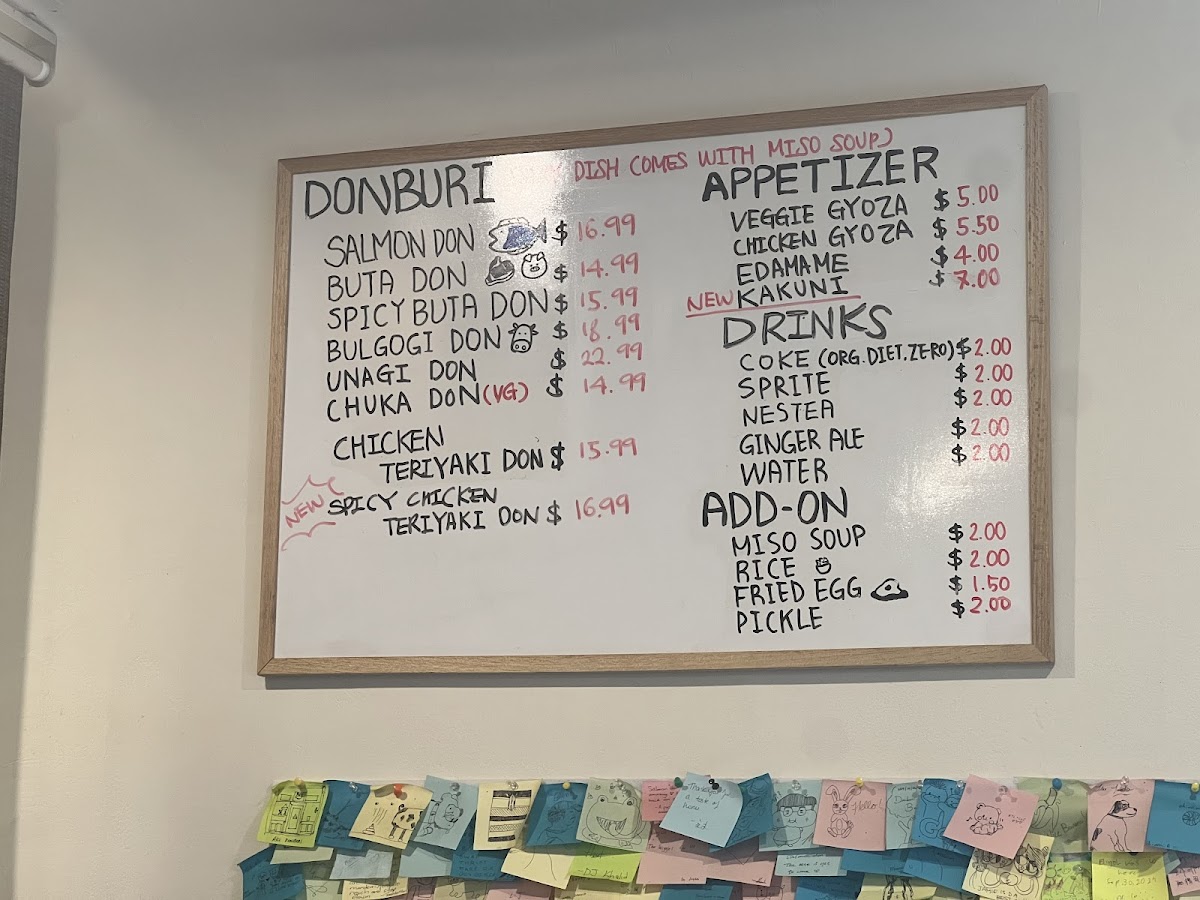 DONBURI
DISH COMES WITH MISO SOUP)
SALMON DON $ 16.99
BUTA DON $ 14.99
SPICY BUTA DON $ 15.99
BULGOGI DON $ 18.99
UNAGI DON $ 22.99
CHUKA DON (VG) $ 14.99
CHICKEN
TERIYAKI DON $ 15.99
NEW SPICY CHICKEN
TERIYAKI DON $ 16.99
APPETIZER
VEGGIE GYOZA $ 5.00
CHICKEN GYOZA $ 5.50
EDAMAME $ 4.00
NEW KAKUNI $ 7.00
DRINKS
COKE (ORG.DIET.ZERO) $2.00
SPRITE $ 2.00
NESTEA $ 2.00
GINGER ALE $ 2.00
WATER $ 2.00
ADD-ON
MISO SOUP $ 2.00
RICE $ 2.00
FRIED EGG $ 1.50
PICKLE $ 2.00
Hello!